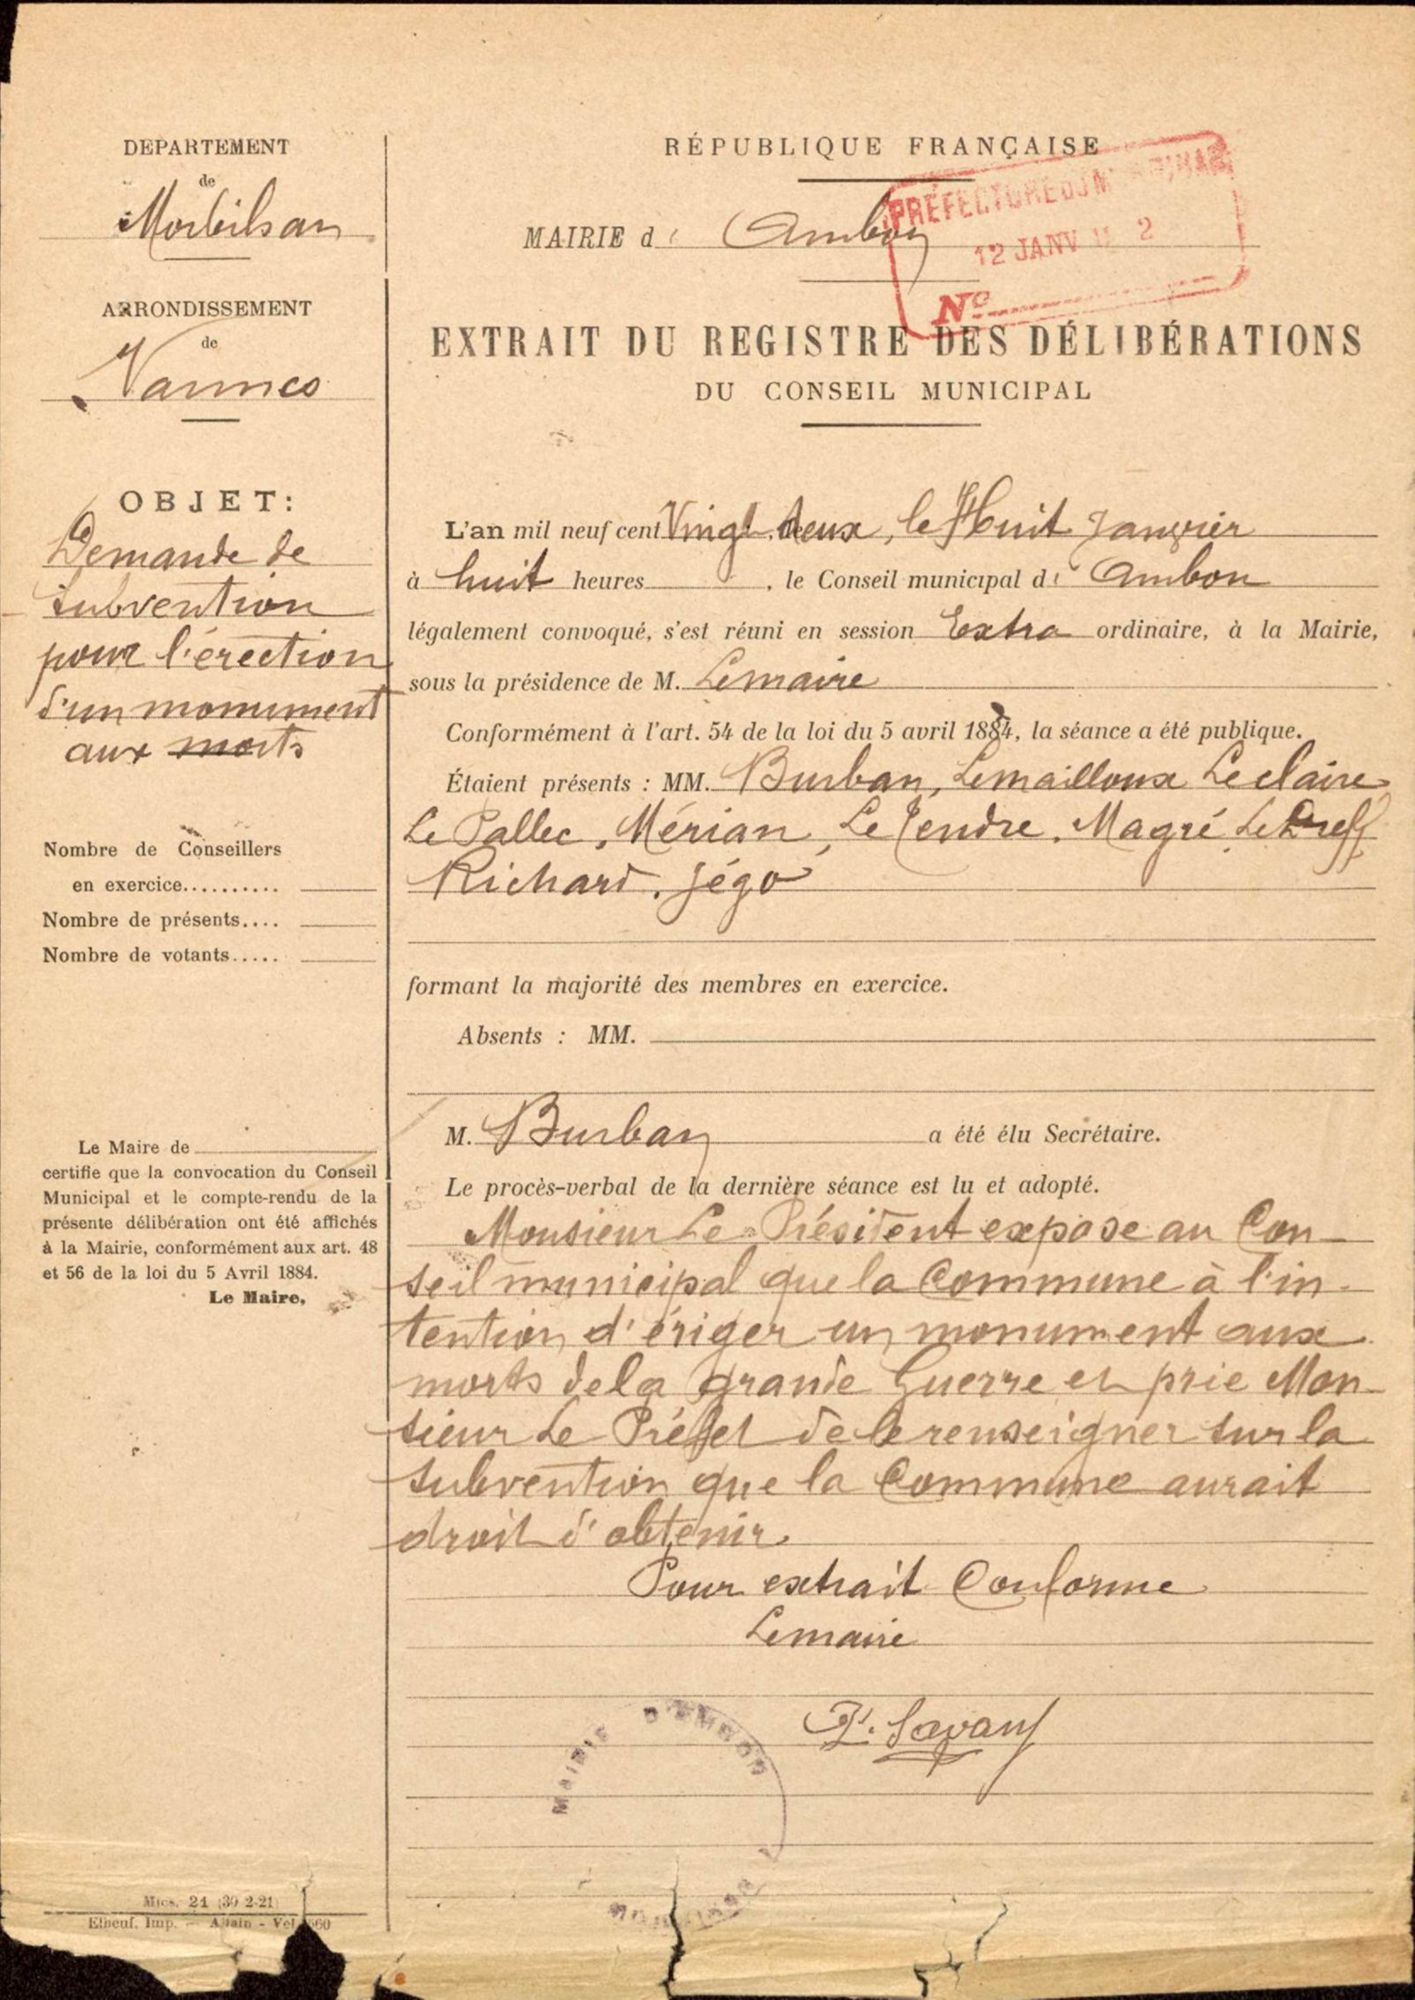 DEPARTEMENT
de
Morbihan
ARRONDISSEMENT
de
Vannes
OBJET:
Demande de
subvention
pour l'érection
d'un monument
aux morts
Nombre de Conseillers
en exercice..........
Nombre de présents....
Nombre de votants.....
Le Maire de
certifie que la convocation du Conseil
Municipal et le compte-rendu de la
présente délibération ont été affichés
à la Mairie, conformément aux art. 48
et 56 de la loi du 5 Avril 1884.
Le Maire,
RÉPUBLIQUE FRANÇAISE
PRÉFECTURE DU MORBIHAN
12 JANV 2
Nº
MAIRIE d' Ambon
EXTRAIT DU REGISTRE DES DÉLIBÉRATIONS
DU CONSEIL MUNICIPAL
L'an mil neuf cent Vingt deux, le Huit Janvier
à huit heures , le Conseil municipal d' Ambon
légalement convoqué, s'est réuni en session Extra ordinaire, à la Mairie,
sous la présidence de M. Lemaire
Conformément à l'art. 54 de la loi du 5 avril 1884, la séance a été publique.
Étaient présents : MM. Burban, Lemailloux Leclaire
Le Pallec, Mérian, Le Tendre, Magré
Richard, Jégo
formant la majorité des membres en exercice.
Absents : MM.
M. Burban a été élu Secrétaire.
Le procès-verbal de la dernière séance est lu et adopté.
Monsieur Le Président expose au Con-
seil municipal que la Commune à l'in-
tention d'ériger un monument aux
morts de la grande Guerre et prie Mon-
sieur Le Préfet de le renseigner sur la
subvention que la Commune aurait
droit d'obtenir.
Pour extrait Conforme
Lemaire
MAIRIE D'AMBON
MORBIHAN
Mies. 24 (30-2-21)
Elbeuf. Imp. — Allain - Vel